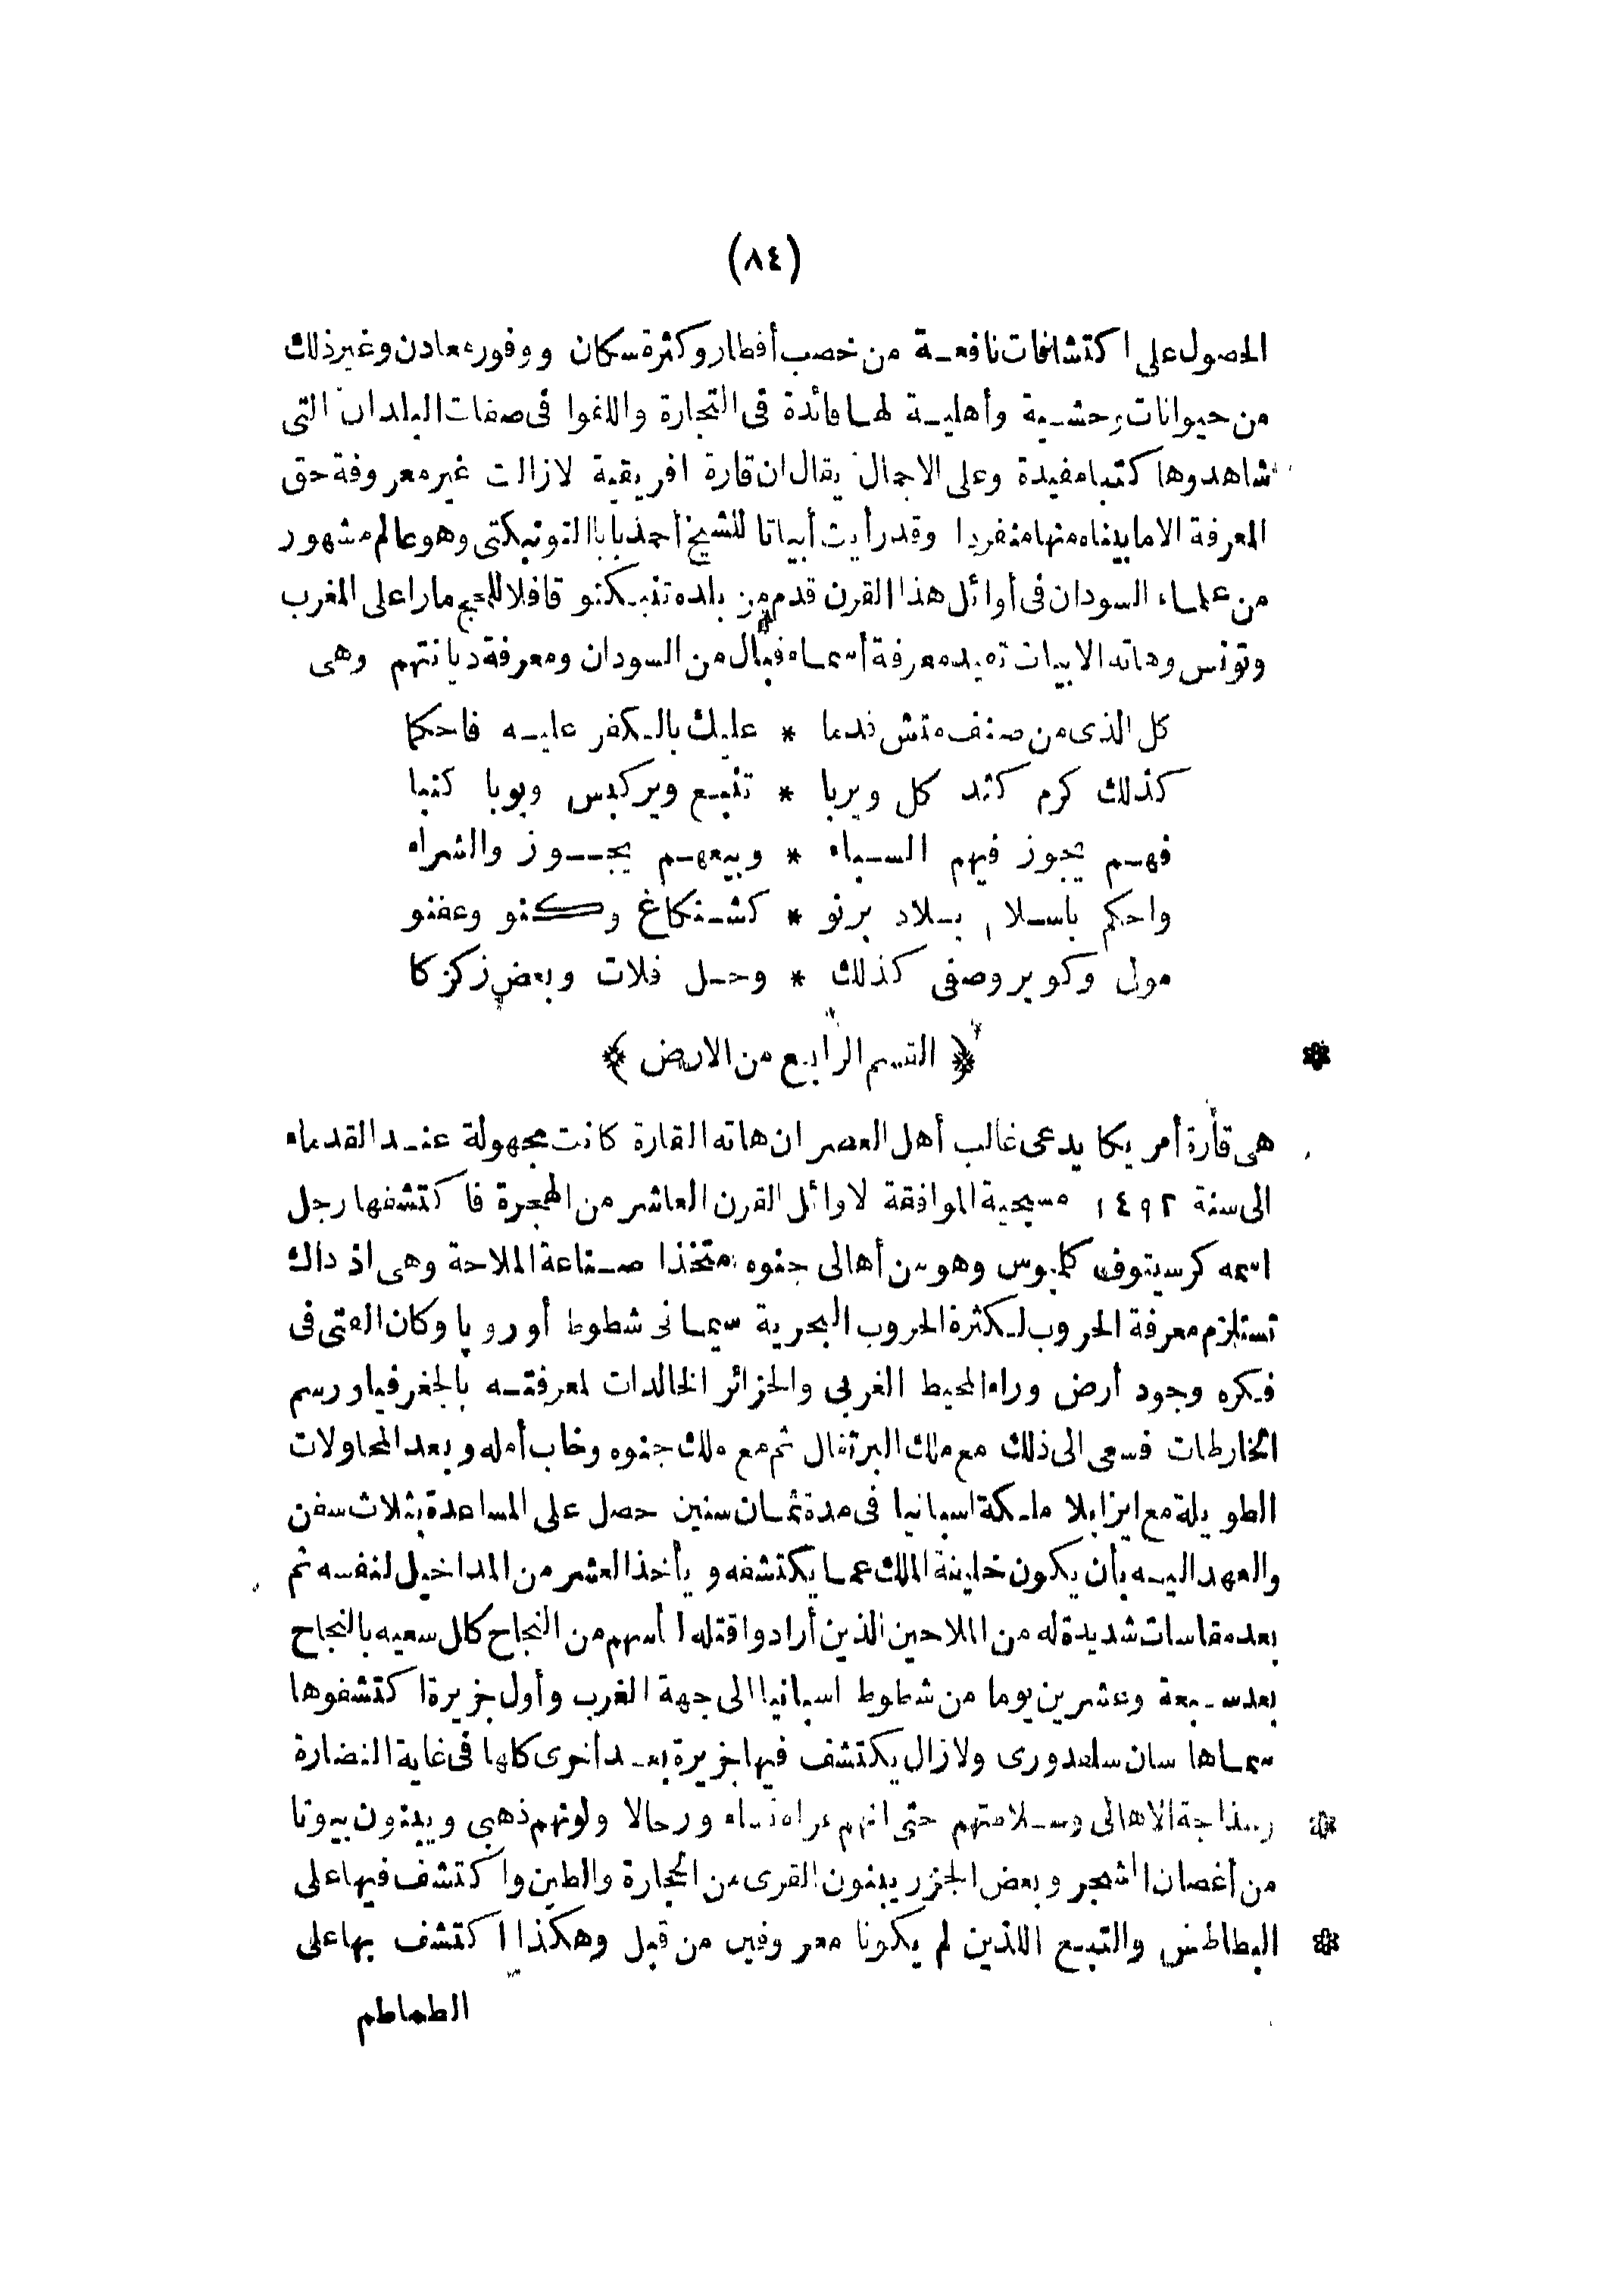 (٨٤)
الحصول على اكتشافات نافعة من خصب أقطار وكثرة سكان ووفور معادن وغير ذلك
من حيوانات وحشية وأهلية لها فائدة فى التجارة والفوا فى صفات البلدان التى
شاهدوها كتبا مفيدة وعلى الاجمال يقال ان قارة افريقية لازالت غير معروفة حق
المعرفة الا ما بيناه منها منفردا وقد رأيت أبياتا للشيخ أحمد بابا التونبكتى وهو عالم مشهور
من علماء السودان فى أوائل هذا القرن قدم من بلده تنبكتو قافلا للحج مارا على المغرب
وتونس وهاته الابيات تفيد معرفة أسماء قبائل من السودان ومعرفة ديانتهم وهى
كل الذى من صنف متش قدما * عليك بالكفر عليه فاحكما
كذلك كرم كند كل ويربا * تنبع ويركبس وبوبا كنبا
فهم يجوز فيهم السباء * وبيعهم يجوز والشراء
واحكم باسلام بلاد برنو * كشنكاغ وكنو وعفنو
مولى وكوبر وصفى كذلك * وجل فلات وبعض زكزكا
﴿ القسم الرابع من الارض ﴾
هى قارة أمريكا يدعى غالب أهل العصر ان هاته القارة كانت مجهولة عند القدماء
الى سنة ١٤٩٢ مسيحية الموافقة لاوائل القرن العاشر من الهجرة فاكتشفها رجل
اسمه كرسيتوف كلبوس وهو من أهالى جنوه متخذا صناعة الملاحة وهى اذ ذاك
تستلزم معرفة الحروب لكثرة الحروب البحرية سيما فى شطوط أوروبا وكان الفتى فى
فكره وجود أرض وراء المحيط الغربى والجزائر الخالدات لمعرفته بالجغرفيا ورسم
الخارطات فسعى الى ذلك مع ملك البرتغال ثم مع ملك جنوه وخاب أمله وبعد المحاولات
الطويلة مع ايزابلا ملكة اسبانيا فى مدة ثمان سنين حصل على المساعدة بثلاث سفن
والعهد اليه بأن يكون خليفة الملك عما يكتشفه ويأخذ العشر من المداخيل لنفسه ثم
بعد مقاسات شديدة له من الملاحين الذين أرادوا قتله لما أسهم من النجاح كال سعيه بالنجاح
بعد سبعة وعشرين يوما من شطوط اسبانيا الى جهة الغرب وأول جزيرة اكتشفوها
سماها سان سلفدورى ولازال يكتشف فيها جزيرة بعد أخرى كلها فى غاية النضارة
وسذاجة الاهالى وسلامتهم حتى انهم عراه نساء ورجالا ولونهم ذهبى ويبنون بيوتا
من أغصان الشجر وبعض الجزر يبنون القرى من الحجارة والطين واكتشف فيها على
البطاطس والتبغ اللذين لم يكونا معروفين من قبل وهكذا اكتشف بها على
الطماطم